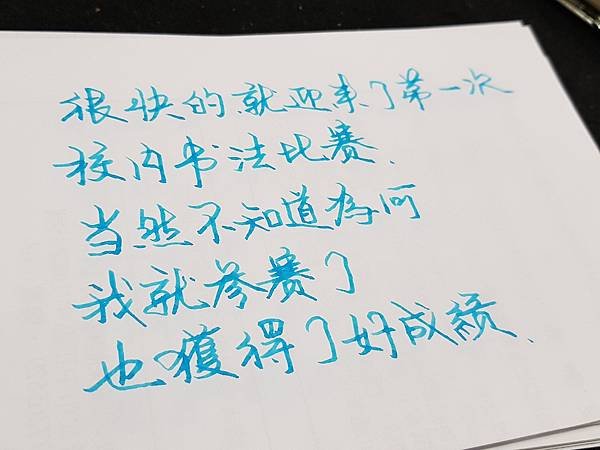 很快的就迎来了第一次
校内书法比赛、
当然不知道為何
我就参赛了
也獲得了好成績、